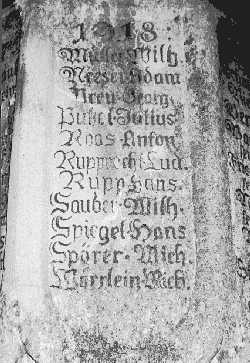 1918:
Müller Wilh.
Meeser Adam
Georg
Julius
Raas Anton
Rupprecht Lud.
Rupp Hans.
Sauber Wilh.
Spiegel Hans
Spörer Mich.
Wörrlein Mich.